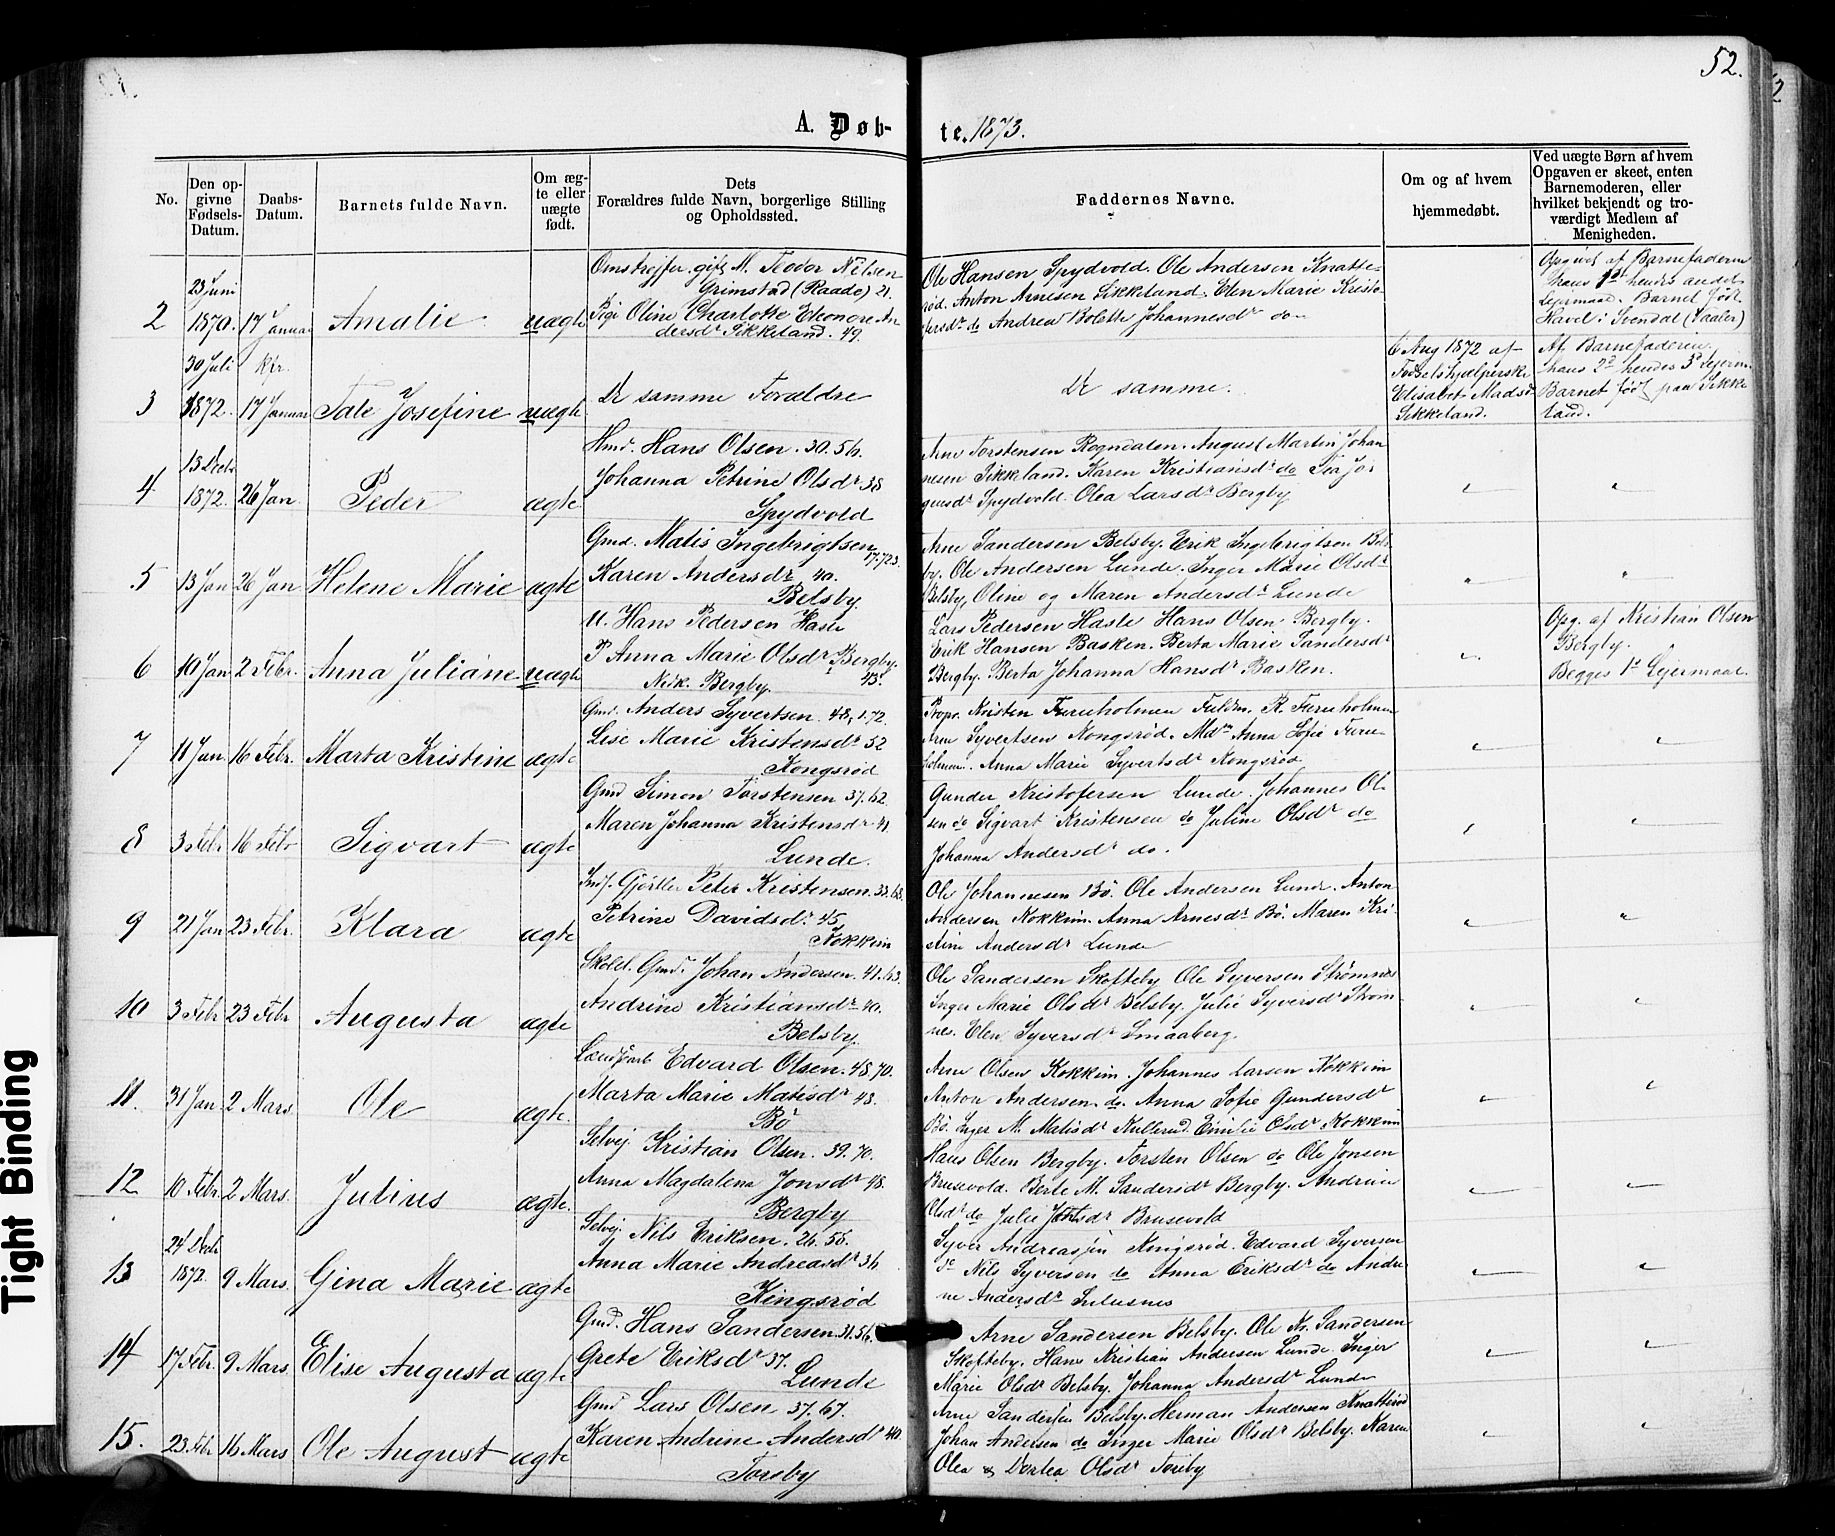 52.
A. Døb-
te. 1873.
No.
Den op-
givne
Fødsels-
Datum.
Daabs-
Datum.
Barnets fulde Navn.
Om æg-
te eller
uægte
født.
Dets
Forældres fulde Navn, borgerlige Stilling
og Opholdssted.
Faddernes Navne.
Om og af hvem
hjemmedøbt.
Ved uægte Børn af hvem
Opgaven er skeet, enten
Barnemoderen, eller
hvilket bekjendt og tro-
værdigt Medlem af
Menigheden.
2
23 Juni
1870.
17 Januar
Amalie
uægte
Omstrejfer. gift M. Teodor Nilsen
Grimstad (Raade) 21.
Pige Oline Charlotte Eleonore An
dersdr Sikkeland. 49.
Ole Hansen Spydvold. Ole Andersen Knatte-
rød. Anton Arnesen Sikkeland. Elen Marie Kristo-
fersdr do Andrea Bolette Johannesdr do
Opgivet af Barnefaderen
hans 1st hendes andet
Lejermaal. Barnet født
Havel i Svendal (Vaaler)
3
30 Juli
1872.
Kfr.
17 Januar
Tale Josefine
uægte
De samme Forældre
De samme.
6 Aug 1872 af
Fødselshjælperske
Elisabet Madsdr
Sikkeland.
Af Barnefaderen.
hans 2d hendes 3d Lejerm
Barnet født paa Sikke
land.
4
13 Decbr
1872.
26 Jan
Peder
ægte
Hmd. Hans Olsen. 30.56.
Johanna Petrine Olsdr 38
Spydvold
Arne Torstensen Rogndalen. August Martin Johan
nesen Sikkeland. Karen Kristiansdr do Tea Jør
gensdr Spydvold. Olea Larsdr Bergby
"
"
5
13 Jan
26 Jan
Helene Marie
ægte
Gmd. Matis Ingebrigtsen
17.72.3.
Karen Andersdr 40.
Belsby
Arne Sandersen Belsby. Erik Ingebrigtson Bels-
by. Ole Andersen Lunde. Inger Marie Olsdr
Belsby, Oline og Maren Andersdr Lunde
"
"
6
10 Jan
2 Febr.
Anna Juliane
uægte
U. Hans Pedersen Hasle
P Anna Marie Olsdr Bergby.
Ndk. Bergby.
43.
Lars Pedersen Hasle Hans Olsen Bergby.
Erik Hansen Basken. Berta Marie Sandersdr
Bergby. Berta Johanna Hansdr Basken.
"
Opg. af Kristian Olsen
Bergby.
Begges 1st Lejermaal.
7
11 Jan
16 Febr.
Marta Kristine
ægte
Gmd. Anders Syvertsen. 48,1.72.
Lise Marie Kristensdr 52
Kongsrød
Propr. Kristen Furuholmen Fuldm. R. Furuholmen
Arne Syvertsen Kongsrød. Mdm Anna Sofie Furu-
holmen. Anna Marie Syvertsdr Kongsrød
"
"
8
3 Febr
16 Febr
Sigvart
ægte
Gmd Simon Torstensen 37.62.
Maren Johanna Kristensdr 41.
Lunde.
Gunder Kristofersen Lunde. Johannes Ol-
sen do Sigvart Kristensen do Juline Olsdr do
Johanna Andersdr do.
"
"
9
21 Jan
23 Febr.
Klara
ægte
Indf. Gjørtler Peter Kristensen. 33.68.
Petrine Davidsdr 45
Kokkim
Ole Johannesen Bö. Ole Andersen Lund. Anton
Andersen Kokkim. Anna Arnesdr Bö. Maren Kri-
stine Andersdr Lunde
"
"
10
3 Febr
23 Febr
Augusta
ægte
Skolel. Gmd. Johan Andersen. 41.63.
Andrine Kristiansdr 40.
Belsby
Ole Sandersen Skofteby Ole Syversen Strømnes
Inger Marie Olsdr Belsby Julie Syversdr Strøm-
nes. Elen Syversdr Smaaberg.
"
"
11.
31 Jan
2 Mars.
Ole
ægte.
Edvard Olsen. 48.70.
Marta Marie Matisdr 48.
Bö
Arne Olsen Kokkim. Johannes Larsen Kokkim
Anton Andersen do Anna Sofie Gundersdr
Bö. Inger M. Matisdr Kullerud. Emilie Olsdr Kokkim
"
"
12
10 Febr.
2 Mars.
Julius
ægte.
Selvej. Kristian Olsen. 39.70.
Anna Magdalena Jonsdr 48.
Bergby
Hans Olsen Bergby. Torsten Olsen do Ole Jonsen
Brusevold. Berte M. Sandersdr Bergby. Andrine
Olsdr do Julie Jonsdr Brusevold
"
"
13
24 Decbr
1872.
9 Mars.
Gina Marie
ægte
Selvej. Nils Eriksen. 26.58.
Anna Marie Andreasdr 36
Kingsrød
Syver Andreassen Kongsrød. Edvard Syversen
do Nils Syversen do Anna Eriksdr do Andri
ne Andersdr Sulusnes
"
"
14
17 Febr.
9 Mars.
Elise Augusta
ægte
Gmd. Hans Sandersen. 31.56.
Grete Eriksdr 37.
Lunde
Arne Sandersen Belsby. Ole N. Sandersen
Skofteby. Hans Kristian Andersen Lunde. Inger
Marie Olsdr Belsby. Johanna Andersdr Lunde
"
"
15.
23 Febr
16 Mars
Ole August
ægte
Gmd Lars Olsen 37.67.
Karen Andrine Andersdr 40
Toreby
Arne Sandersen Belsby. Herman Andersen Knatterød
Johan Andersen do Inger Marie Olsdr Belsby. Karen
Olea & Dortea Olsdr Toreby
"
"
Tight Binding